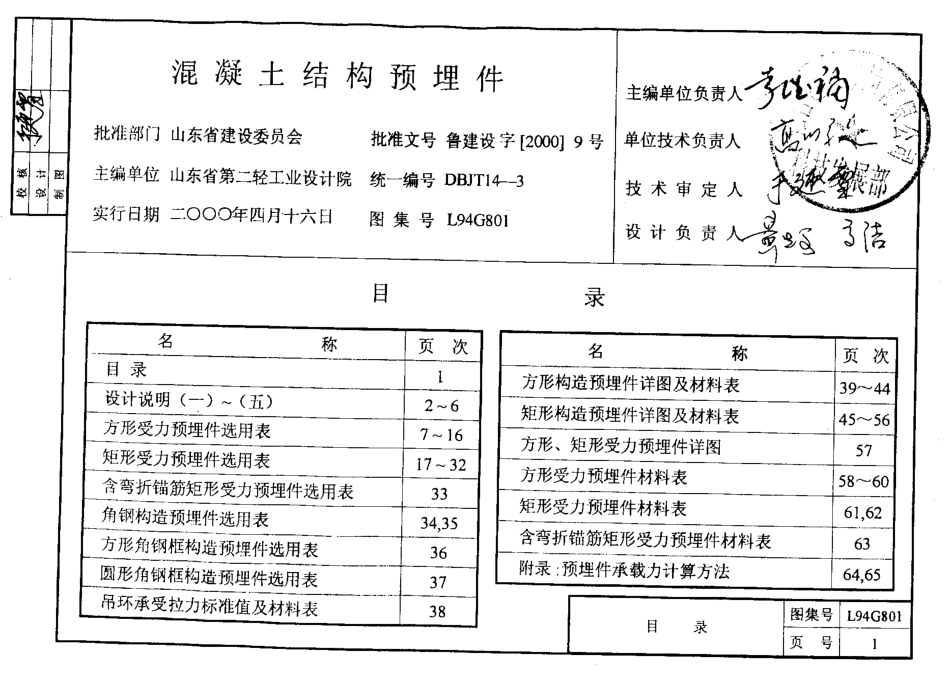 混凝土结构预埋件
批准部门 山东省建设委员会
批准文号 鲁建设字[2000] 9 号
主编单位 山东省第二轻工业设计院
统一编号 DBJT14—3
实行日期 二〇〇〇年四月十六日
图 集 号 L94G801
主编单位负责人
单位技术负责人
技 术 审 定 人
设 计 负 责 人
校 核
设 计
制 图
目 录
名 称 页 次
目 录 1
设计说明(一)~(五) 2~6
方形受力预埋件选用表 7~16
矩形受力预埋件选用表 17~32
含弯折锚筋矩形受力预埋件选用表 33
角钢构造预埋件选用表 34,35
方形角钢框构造预埋件选用表 36
圆形角钢框构造预埋件选用表 37
吊环承受拉力标准值及材料表 38
名 称 页 次
方形构造预埋件详图及材料表 39~44
矩形构造预埋件详图及材料表 45~56
方形、矩形受力预埋件详图 57
方形受力预埋件材料表 58~60
矩形受力预埋件材料表 61,62
含弯折锚筋矩形受力预埋件材料表 63
附录:预埋件承载力计算方法 64,65
目 录
图集号 L94G801
页 号 1